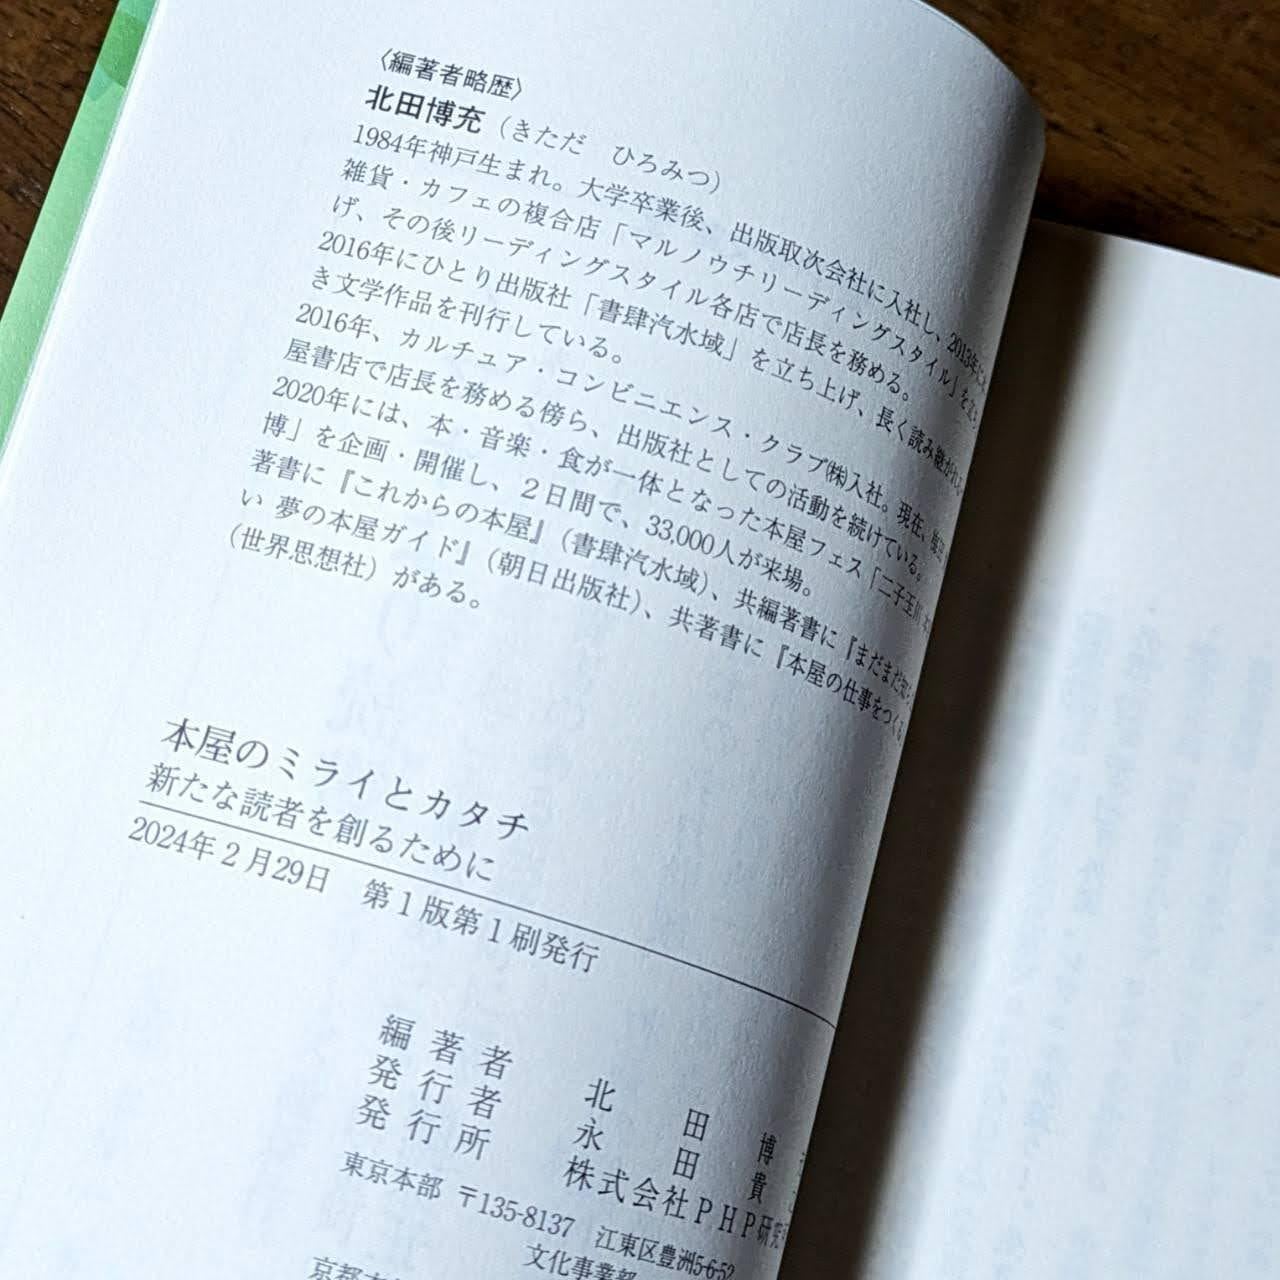 〈編著者略歴〉
北田博充（きただ　ひろみつ）
1984年神戸生まれ。大学卒業後、出版取次会社に入社し、2013年に
雑貨・カフェの複合店「マルノウチリーディングスタイル」を立ち
げ、その後リーディングスタイル各店で店長を務める。
2016年にひとり出版社「書肆汽水域」を立ち上げ、長く読み継がれる
き文学作品を刊行している。
2016年、カルチュア・コンビニエンス・クラブ㈱入社。現在、梅田
屋書店で店長を務める傍ら、出版社としての活動を続けている。
2020年には、本・音楽・食が一体となった本屋フェス「二子玉川 本
博」を企画・開催し、２日間で、33,000人が来場。
著書に『これからの本屋』（書肆汽水域）、共編著書に『まだまだ知ら
い 夢の本屋ガイド』（朝日出版社）、共著書に『本屋の仕事をつくる
（世界思想社）がある。
本屋のミライとカタチ
新たな読者を創るために
2024年２月29日　第１版第１刷発行
編著者　北田博
発行者　永田貴
発行所　株式会社ＰＨＰ研究
東京本部 〒135-8137　江東区豊洲5-6-52
文化事業部
京都本